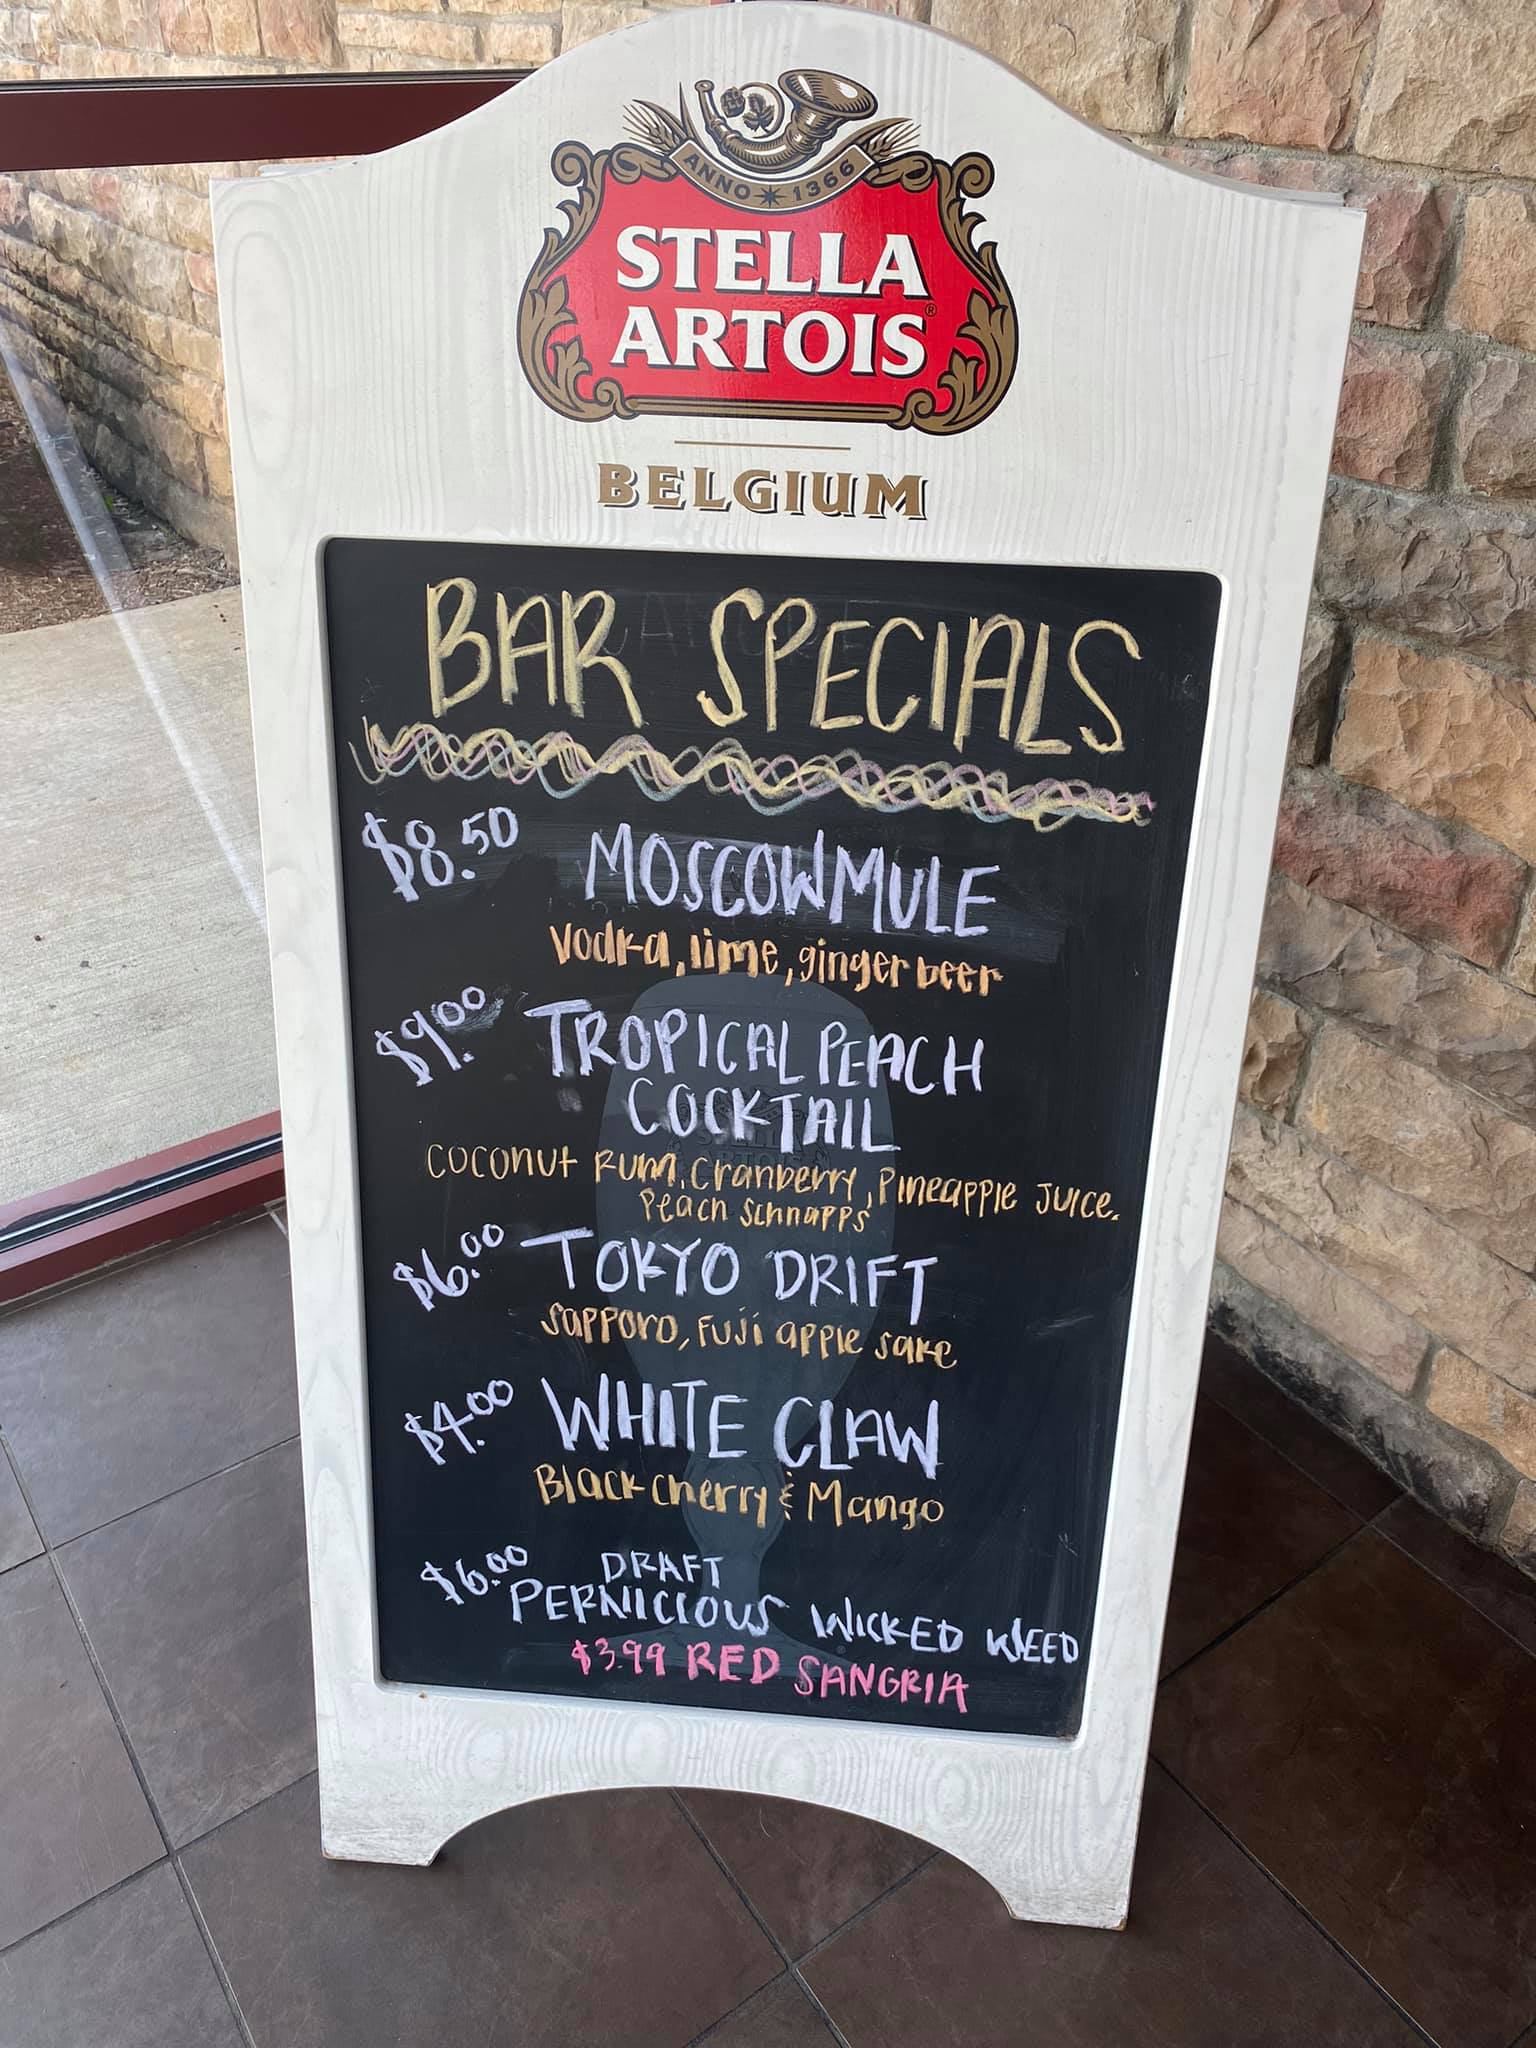 ANNO ★ 1366
STELLA
ARTOIS®
BELGIUM
BAR SPECIALS
$8.50 MOSCOW MULE
Vodka, lime, ginger beer
$9.00 TROPICAL PEACH
COCKTAIL
Coconut Rum, Cranberry, Pineapple Juice.
Peach Schnapps
$6.00 TOKYO DRIFT
Sapporo, Fuji apple sake
$4.00 WHITE CLAW
Black cherry & Mango
$6.00 DRAFT
PERNICIOUS WICKED WEED
$3.99 RED SANGRIA